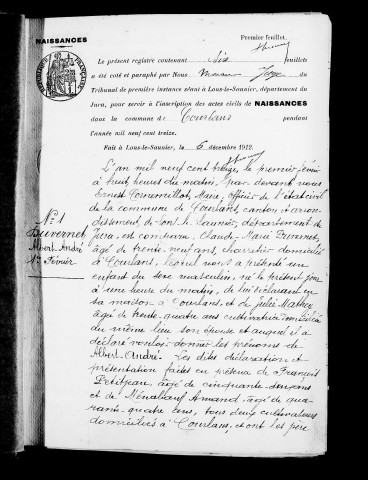 NAISSANCES
Premier feuillet.
Le présent registre contenant six feuillets
a été coté et paraphé par Nous
Tribunal de première instance séant à Lons-le-Saunier, département du
Jura, pour servir à l'inscription des actes civils de NAISSANCES
dans la commune de Courlans pendant
l'année mil neuf cent treize.
Fait à Lons-le-Saunier, le 6 décembre 1912.
N° 1
Albert André
1er Février
L'an mil neuf cent treize, le premier février
à huit heures du matin, par devant nous
Ernest Maire, officier de l'état civil
de la commune de Courlans, canton et arron-
dissement de Lons-le-Saunier, département du
Jura, est comparu Claude Marie
âgé de trente neuf ans, charretier domicilié
à Courlans, lequel nous a présenté un
enfant du sexe masculin, né le présent jour
à une heure du matin, de lui déclarant en
sa maison à Courlans, et de Julie Mathey
âgée de trente quatre ans cultivatrice domiciliée
du même lieu son épouse et auquel il a
déclaré vouloir donner les prénoms de
Albert André. Les dites déclaration et
présentation faites en présence de François
Petitjean, âgé de cinquante ans
et de Armand, âgé de qua-
rante quatre ans, tous deux cultivateurs
domiciliés à Courlans, et ont les père